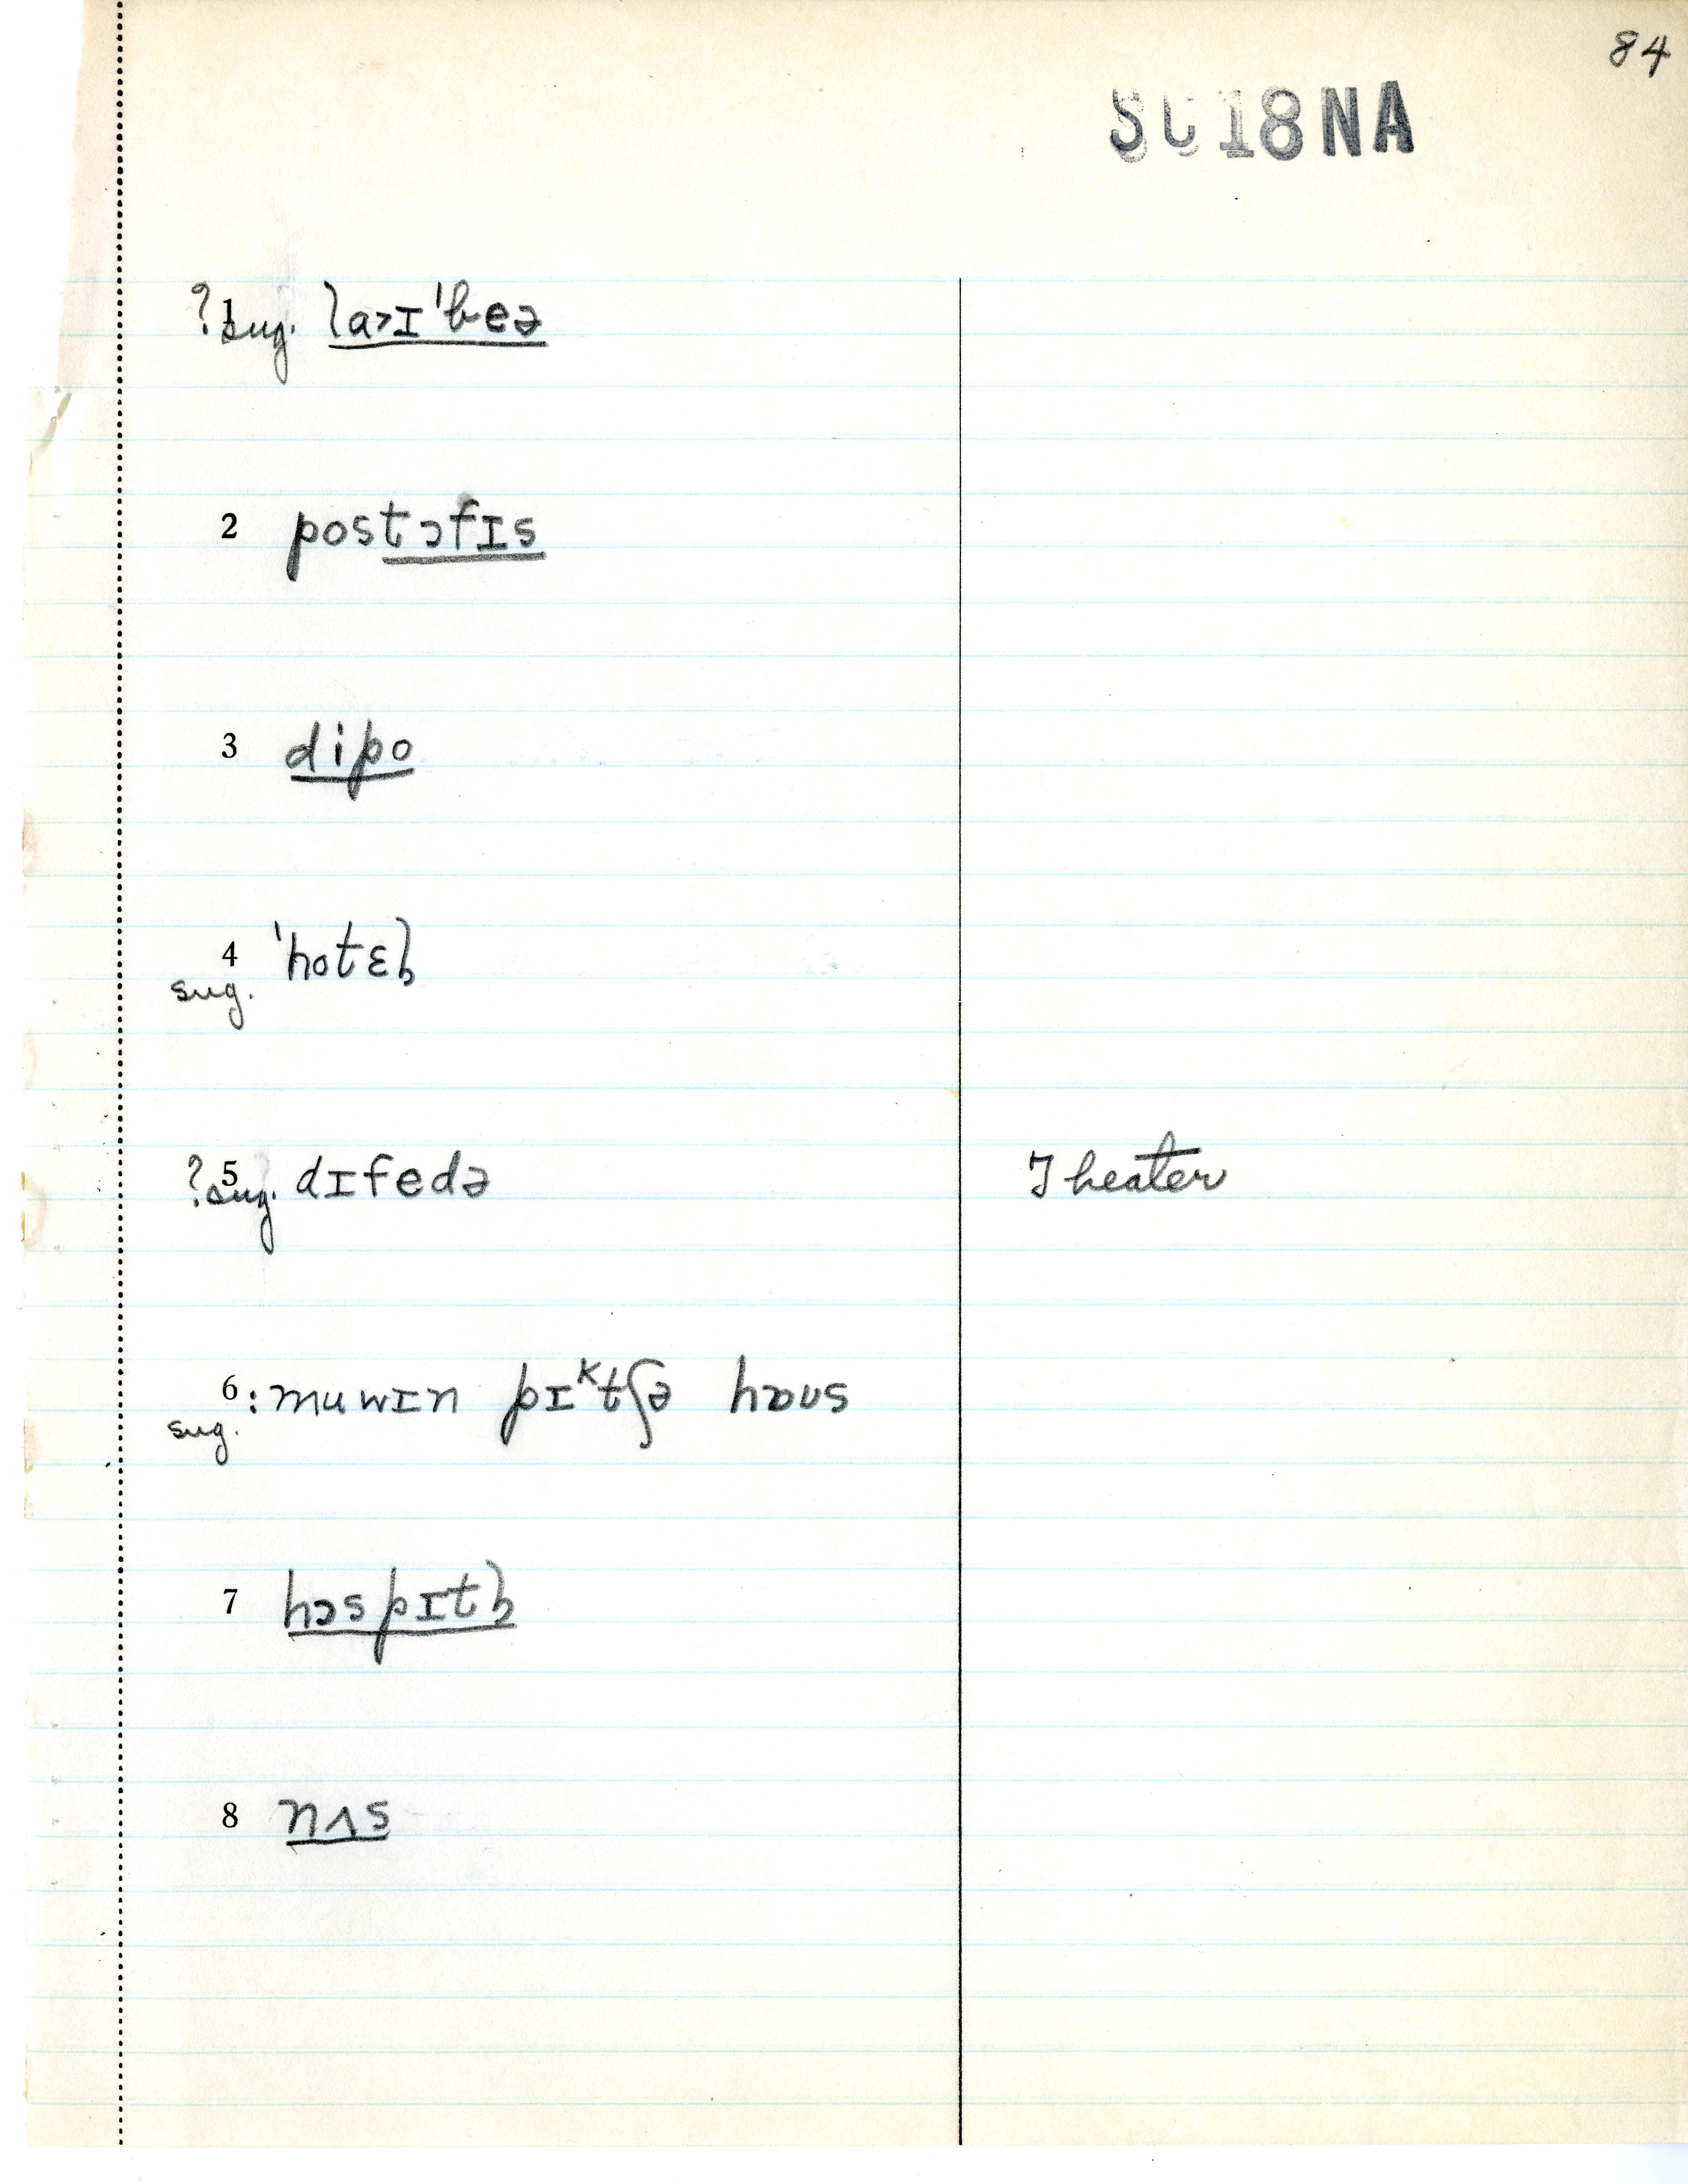 84
SC18NA
?1 sug. la˃ɪˈbeə
2 postɔfɪs
3 dipo
4 ˈhotɛl̩
sug.
?5 sug. dɪfedə Theater
6 :muwɪn pɪᵏtʃə hɒʊs
sug.
7 hɔspɪtl̩
8 nʌs